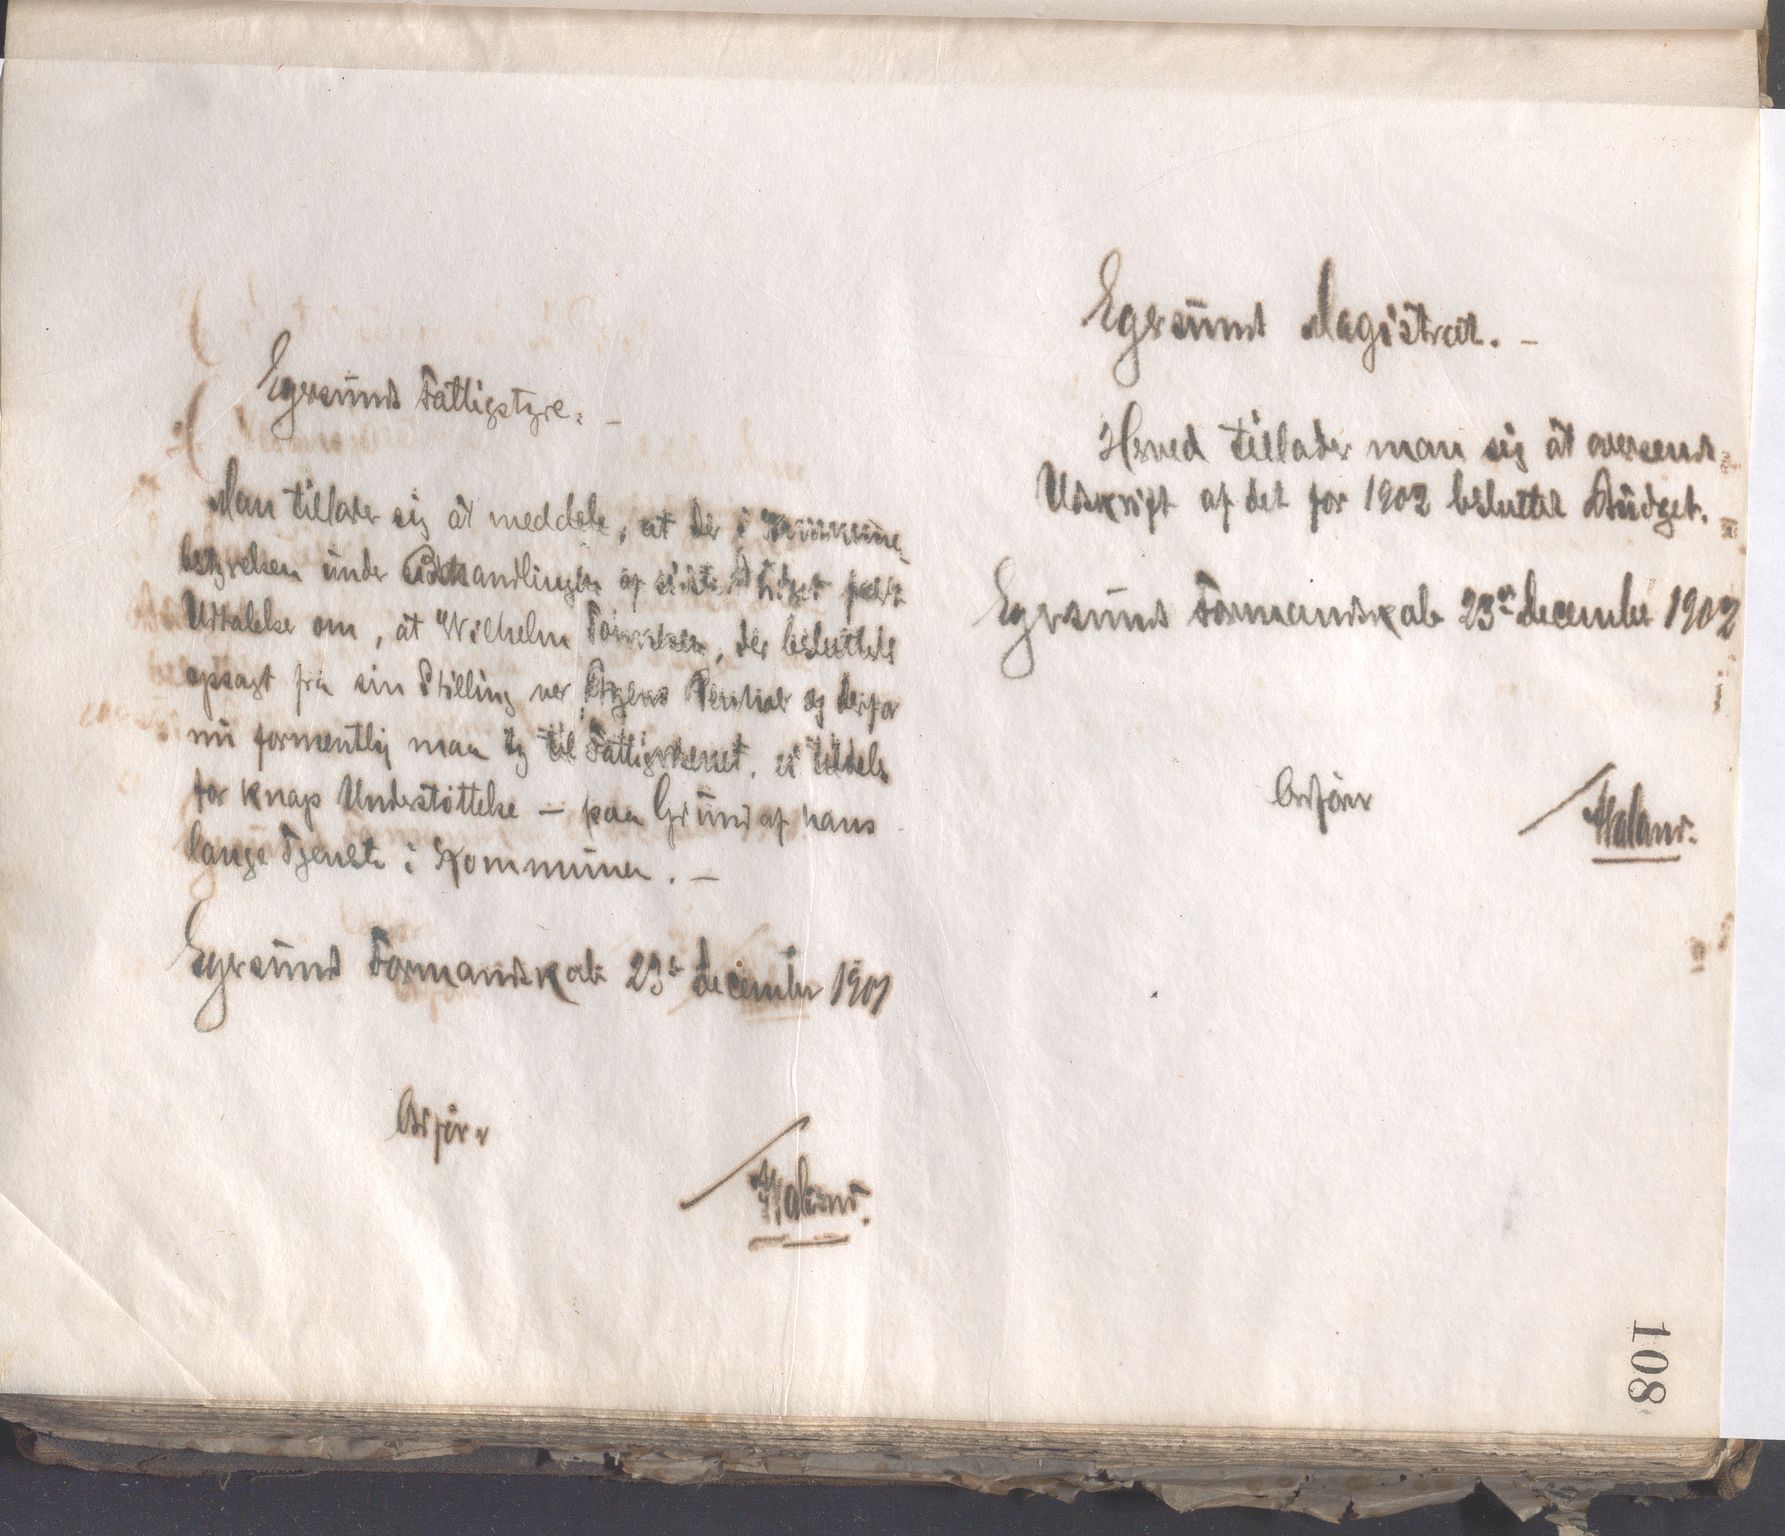 Egersund Fattigstyre. —
Man tillader sig at meddele, at der i Kommune-
bestyrelsen under Behandlingen af sidste Budget faldt
Udtalelse om, at Wilhelm, der besluttedes
opsagt fra sin Stilling ved og derfor
nu formentlig maa ty til Fattigvæsenet, ei tildeles
for knap Understöttelse — paa Grund af hans
lange Tjeneste i Kommunen. —
Egersund Formandskab 23de december 1901
Ordfører
Maland.
Egersund Magistrat. —
Herved tillader man sig at oversende
Udskrift af det for 1902 besluttet Budget.
Egersund Formandskab 23de december 1902
Ordfører
Maland.
108